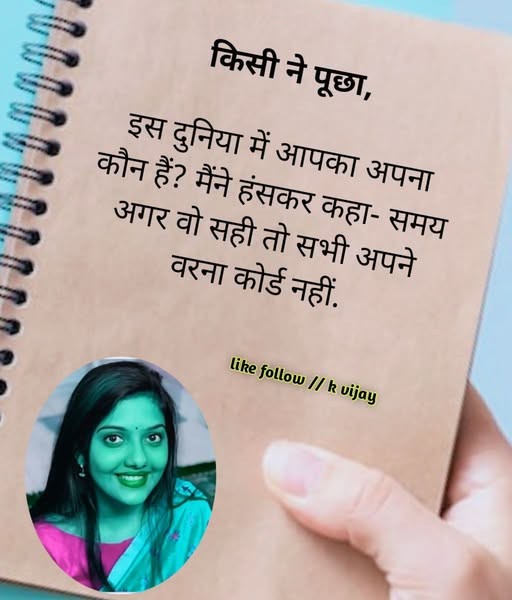 किसी ने पूछा,
इस दुनिया में आपका अपना
कौन हैं? मैंने हंसकर कहा- समय
अगर वो सही तो सभी अपने
वरना कोर्ड नहीं.
like follow // k vijay